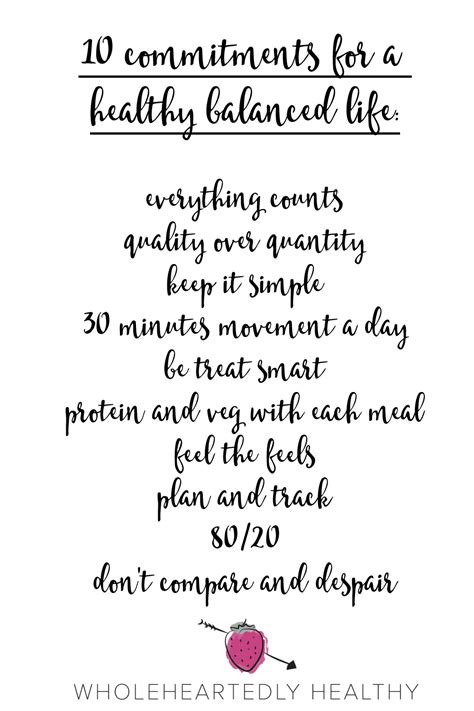 10 commitments for a
healthy balanced life:
everything counts
quality over quantity
keep it simple
30 minutes movement a day
be treat smart
protein and veg with each meal
feel the feels
plan and track
80/20
don't compare and despair
WHOLEHEARTEDLY HEALTHY